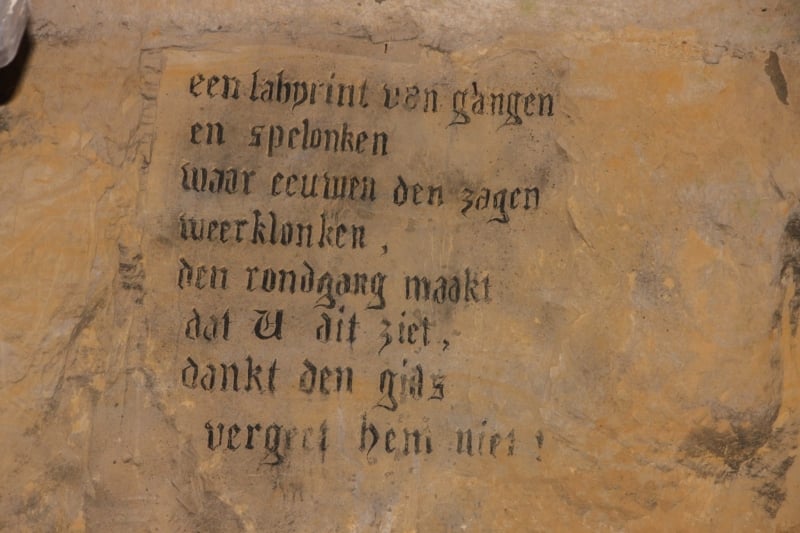 een labyrint van gangen
en spelonken
waar eeuwen den zagen
weerklonken,
den rondgang maakt
dat U dit ziet,
dankt den gids
vergeet hem niet!